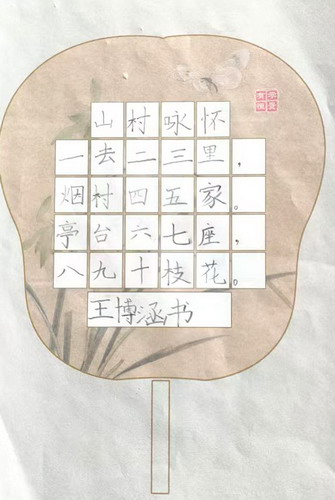 山村咏怀
一去二三里，
烟村四五家。
亭台六七座，
八九十枝花。
王博涵书